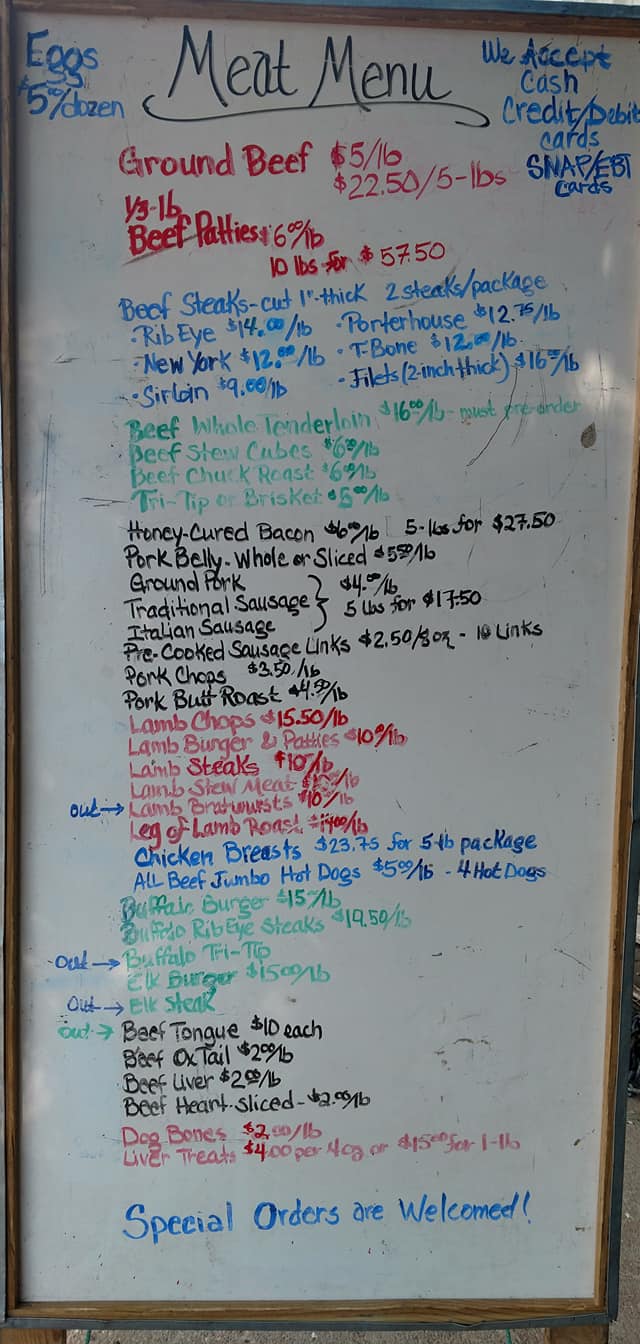 Eggs
$5.00/dozen
Meat Menu
We Accept
Cash
Credit/Debit
cards
SNAP/EBT
Cards
Ground Beef $5/lb
$22.50/5-lbs
1/3-lb
Beef Patties $6.00/lb
10 lbs for $57.50
Beef Steaks-cut 1"-thick 2 steaks/package
·Rib Eye $14.00/lb ·Porterhouse $12.75/lb
·New York $12.00/lb ·T-Bone $12.00/lb
·Sirloin $9.00/lb ·Filets (2-inch thick) $16/lb
Beef Whole Tenderloin $16.00/lb - must pre-order
Beef Stew Cubes $6/lb
Beef Chuck Roast $6/lb
Tri-Tip or Brisket /lb
Honey-Cured Bacon $6/lb 5-lbs for $27.50
Pork Belly-Whole or Sliced $5.50/lb
Ground Pork } $4.00/lb
Traditional Sausage } 5 lbs for $17.50
Italian Sausage
Pre-Cooked Sausage Links $2.50/8oz - 10 Links
Pork Chops $3.50/lb
Pork Butt Roast $4.50/lb
Lamb Chops $15.50/lb
Lamb Burger & Patties $10/lb
Lamb Steaks $10/lb
Lamb Stew Meat /lb
out → Lamb Bratwursts $10/lb
Leg of Lamb Roast $14.00/lb
Chicken Breasts $23.75 for 5-lb package
ALL Beef Jumbo Hot Dogs $5.00/lb - 4 Hot Dogs
Buffalo Burger $15/lb
Buffalo Rib Eye Steaks $19.50/lb
out → Buffalo Tri-Tip
Elk Burger $15.00/lb
Out → Elk Steak
out → Beef Tongue $10 each
Beef Ox Tail $2.00/lb
Beef Liver $2.00/lb
Beef Heart-Sliced-$2.00/lb
Dog Bones $2.00/lb
Liver Treats $4.00 per 4oz or $15.00 for 1-lb
Special Orders are Welcomed!